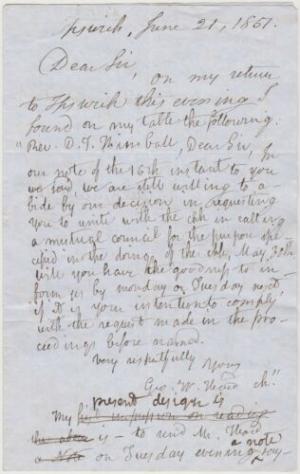 Ipswich, June 21, 1851.
Dear Sir,
on my return
to Ipswich this evening I
found on my table the following:
"Rev. D. T. Kimball, Dear Sir, In
our note of the 16th instant to you
we said, we are still willing to a-
bide by our decision in requesting
you to unite with the chh in calling
a mutual council for the purpose spe-
cified in the doings of the chh, May
will you have the goodness to in-
form us by monday or Tuesday next,
if it is your intention to comply
with the request made in the pro-
ceedings before named.
Very respectfully
Yours
Geo. W. Heard
present design is
My first impression on reading
the above is – to send Mr. Heard
a note
a note on Tuesday evening say-